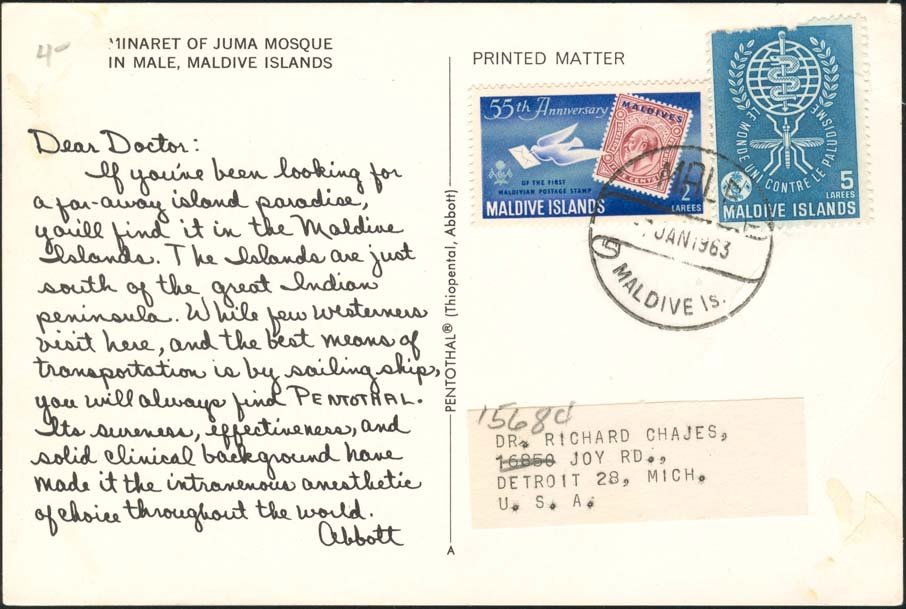 4-
MINARET OF JUMA MOSQUE
IN MALE, MALDIVE ISLANDS
Dear Doctor:
If you've been looking for
a far-away island paradise,
you'll find it in the Maldive
Islands. The Islands are just
south of the great Indian
peninsula. While few westerners
visit here, and the best means of
transportation is by sailing ship,
you will always find PENTOTHAL.
Its sureness, effectiveness, and
solid clinical background have
made it the intravenous anesthetic
of choice throughout the world.
Abbott
PENTOTHAL® (Thiopental, Abbott)
A
PRINTED MATTER
55th Anniversary
MALDIVES
OF THE FIRST
MALDIVIAN POSTAGE STAMP
2
LAREES
MALDIVE ISLANDS
LE MONDE UNI CONTRE LE PALUDISME
5
LAREES
MALDIVE ISLANDS
JAN 1963
MALDIVE Is.
1568
DR. RICHARD CHAJES,
16850 JOY RD.,
DETROIT 28, MICH.
U. S. A.